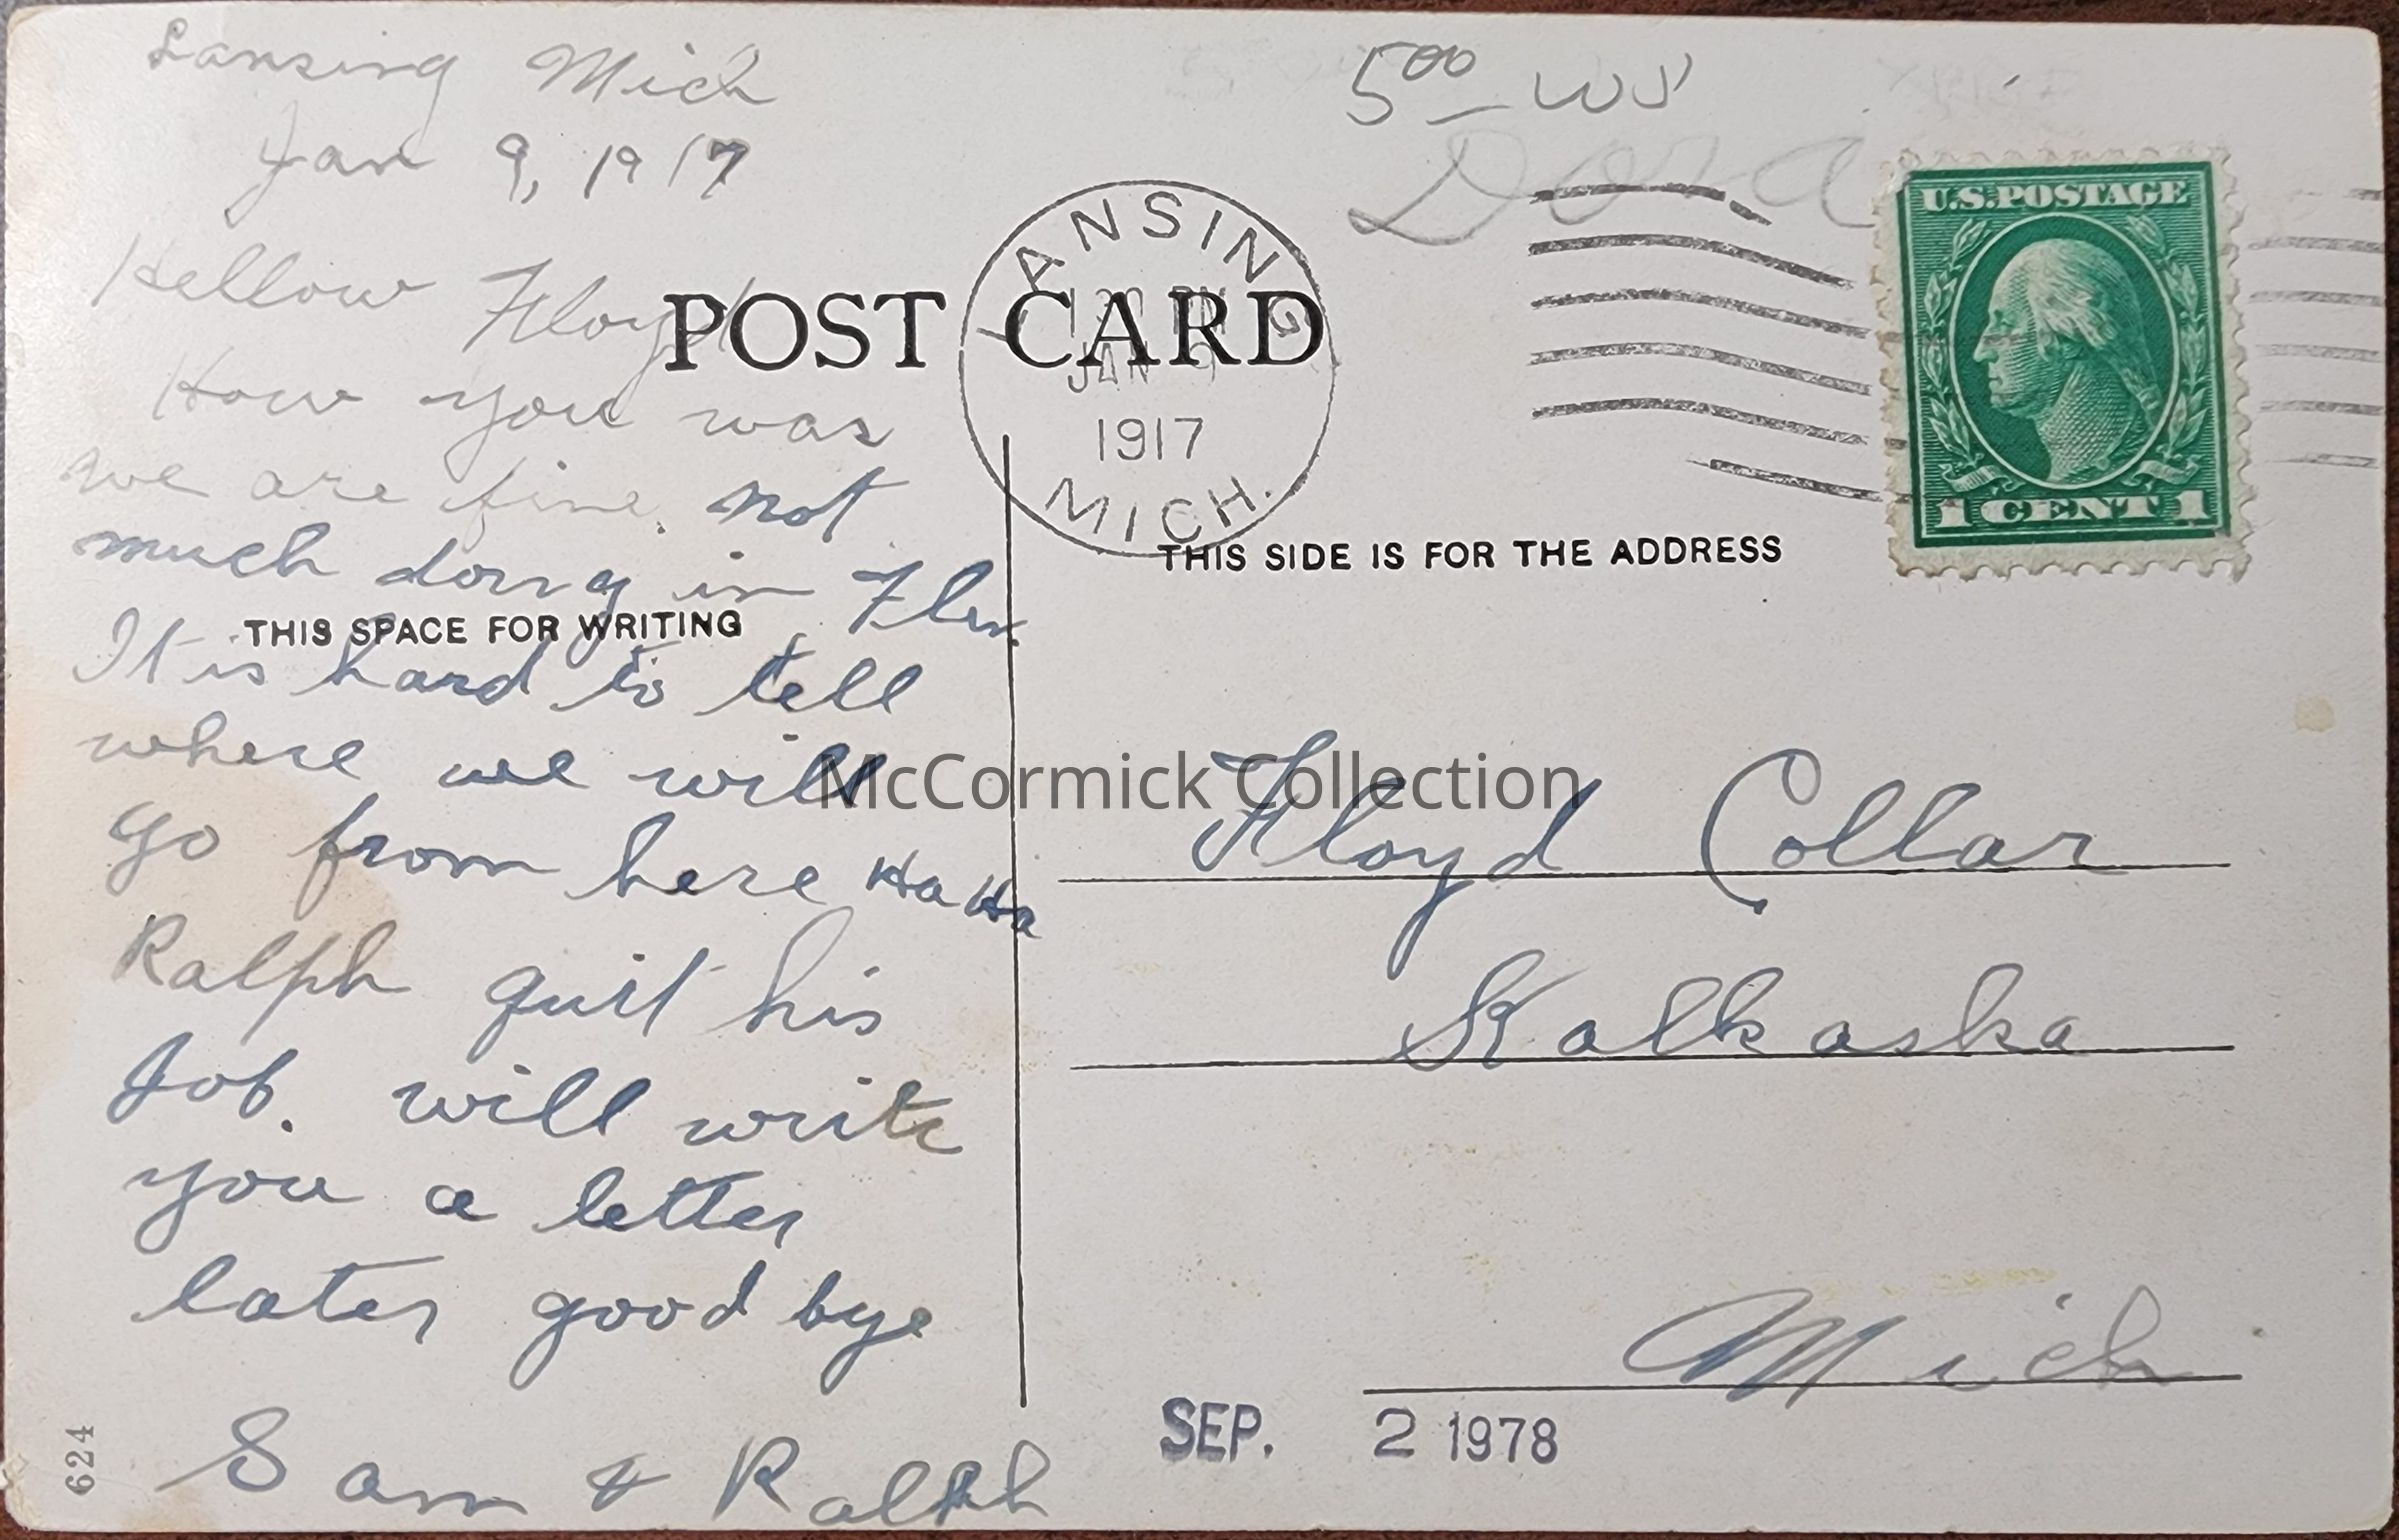 Lansing Mich
Jan 9, 1917
Hellow Floyd
How you was
we are fine. not
much doing in Flin.
It is hard to tell
where we will
go from here Ha Ha
Ralph quit his
Job. will write
you a letter
later good bye
Sam & Ralph
624
POST CARD
THIS SPACE FOR WRITING
5 00 WS
Dora
LANSING
JAN 9
1917
MICH.
U.S. POSTAGE
1 CENT 1
THIS SIDE IS FOR THE ADDRESS
McCormick Collection
Floyd Collar
Kalkaska
Mich
SEP. 2 1978